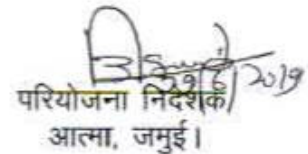 29/6/2019
परियोजना निदेशक
आत्मा, जमुई।